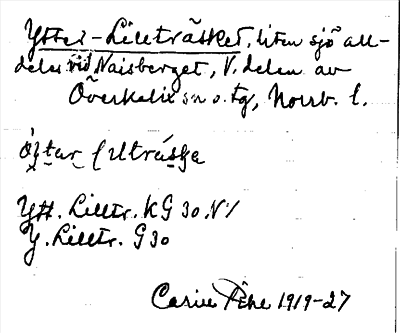 Ytter-Lillträsket, liten sjö all-
deles vid Naisberget, V. delen av
Överkalix sn o. tg, Norrb. l.
Ytt. Lilltr. KG 30. NV
Y. Lilltr. G 30
Carin Pihl 1919-27